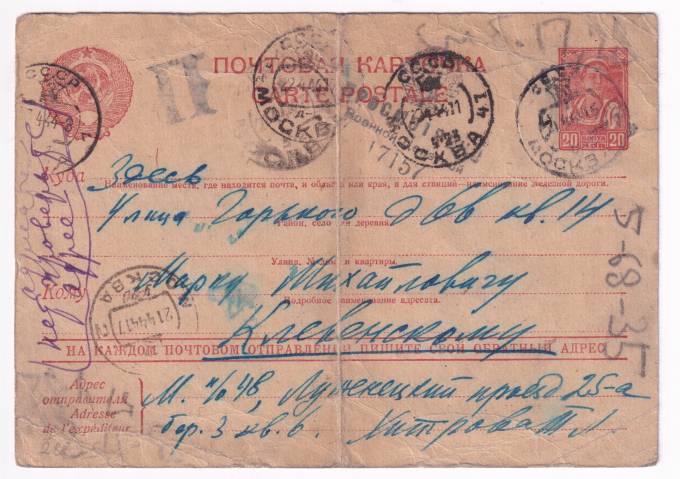 ПОЧТОВАЯ КАРТОЧКА
CARTE POSTALE
П
СССР
МОСКВА
17157
20 20
Куда Здесь
Наименование места, где находится почта, и области или края, а для станций—наименование железной дороги.
Улица Горького д. кв. 14
Район, село или деревня.
Улица, № дома и квартиры.
Кому Марку Михайловичу
Подробное наименование адресата.
Клевенскому
НА КАЖДОМ ПОЧТОВОМ ОТПРАВЛЕНИИ ПИШИТЕ СВОЙ ОБРАТНЫЙ АДРЕС
Адрес
отправителя
Adresse
de l'expéditeur
М. п/о 48, Лужнецкий проезд 25-а
кв. 6. Хитрова Т Л.
5-68-35
адрес
МОСКВА
21444 17